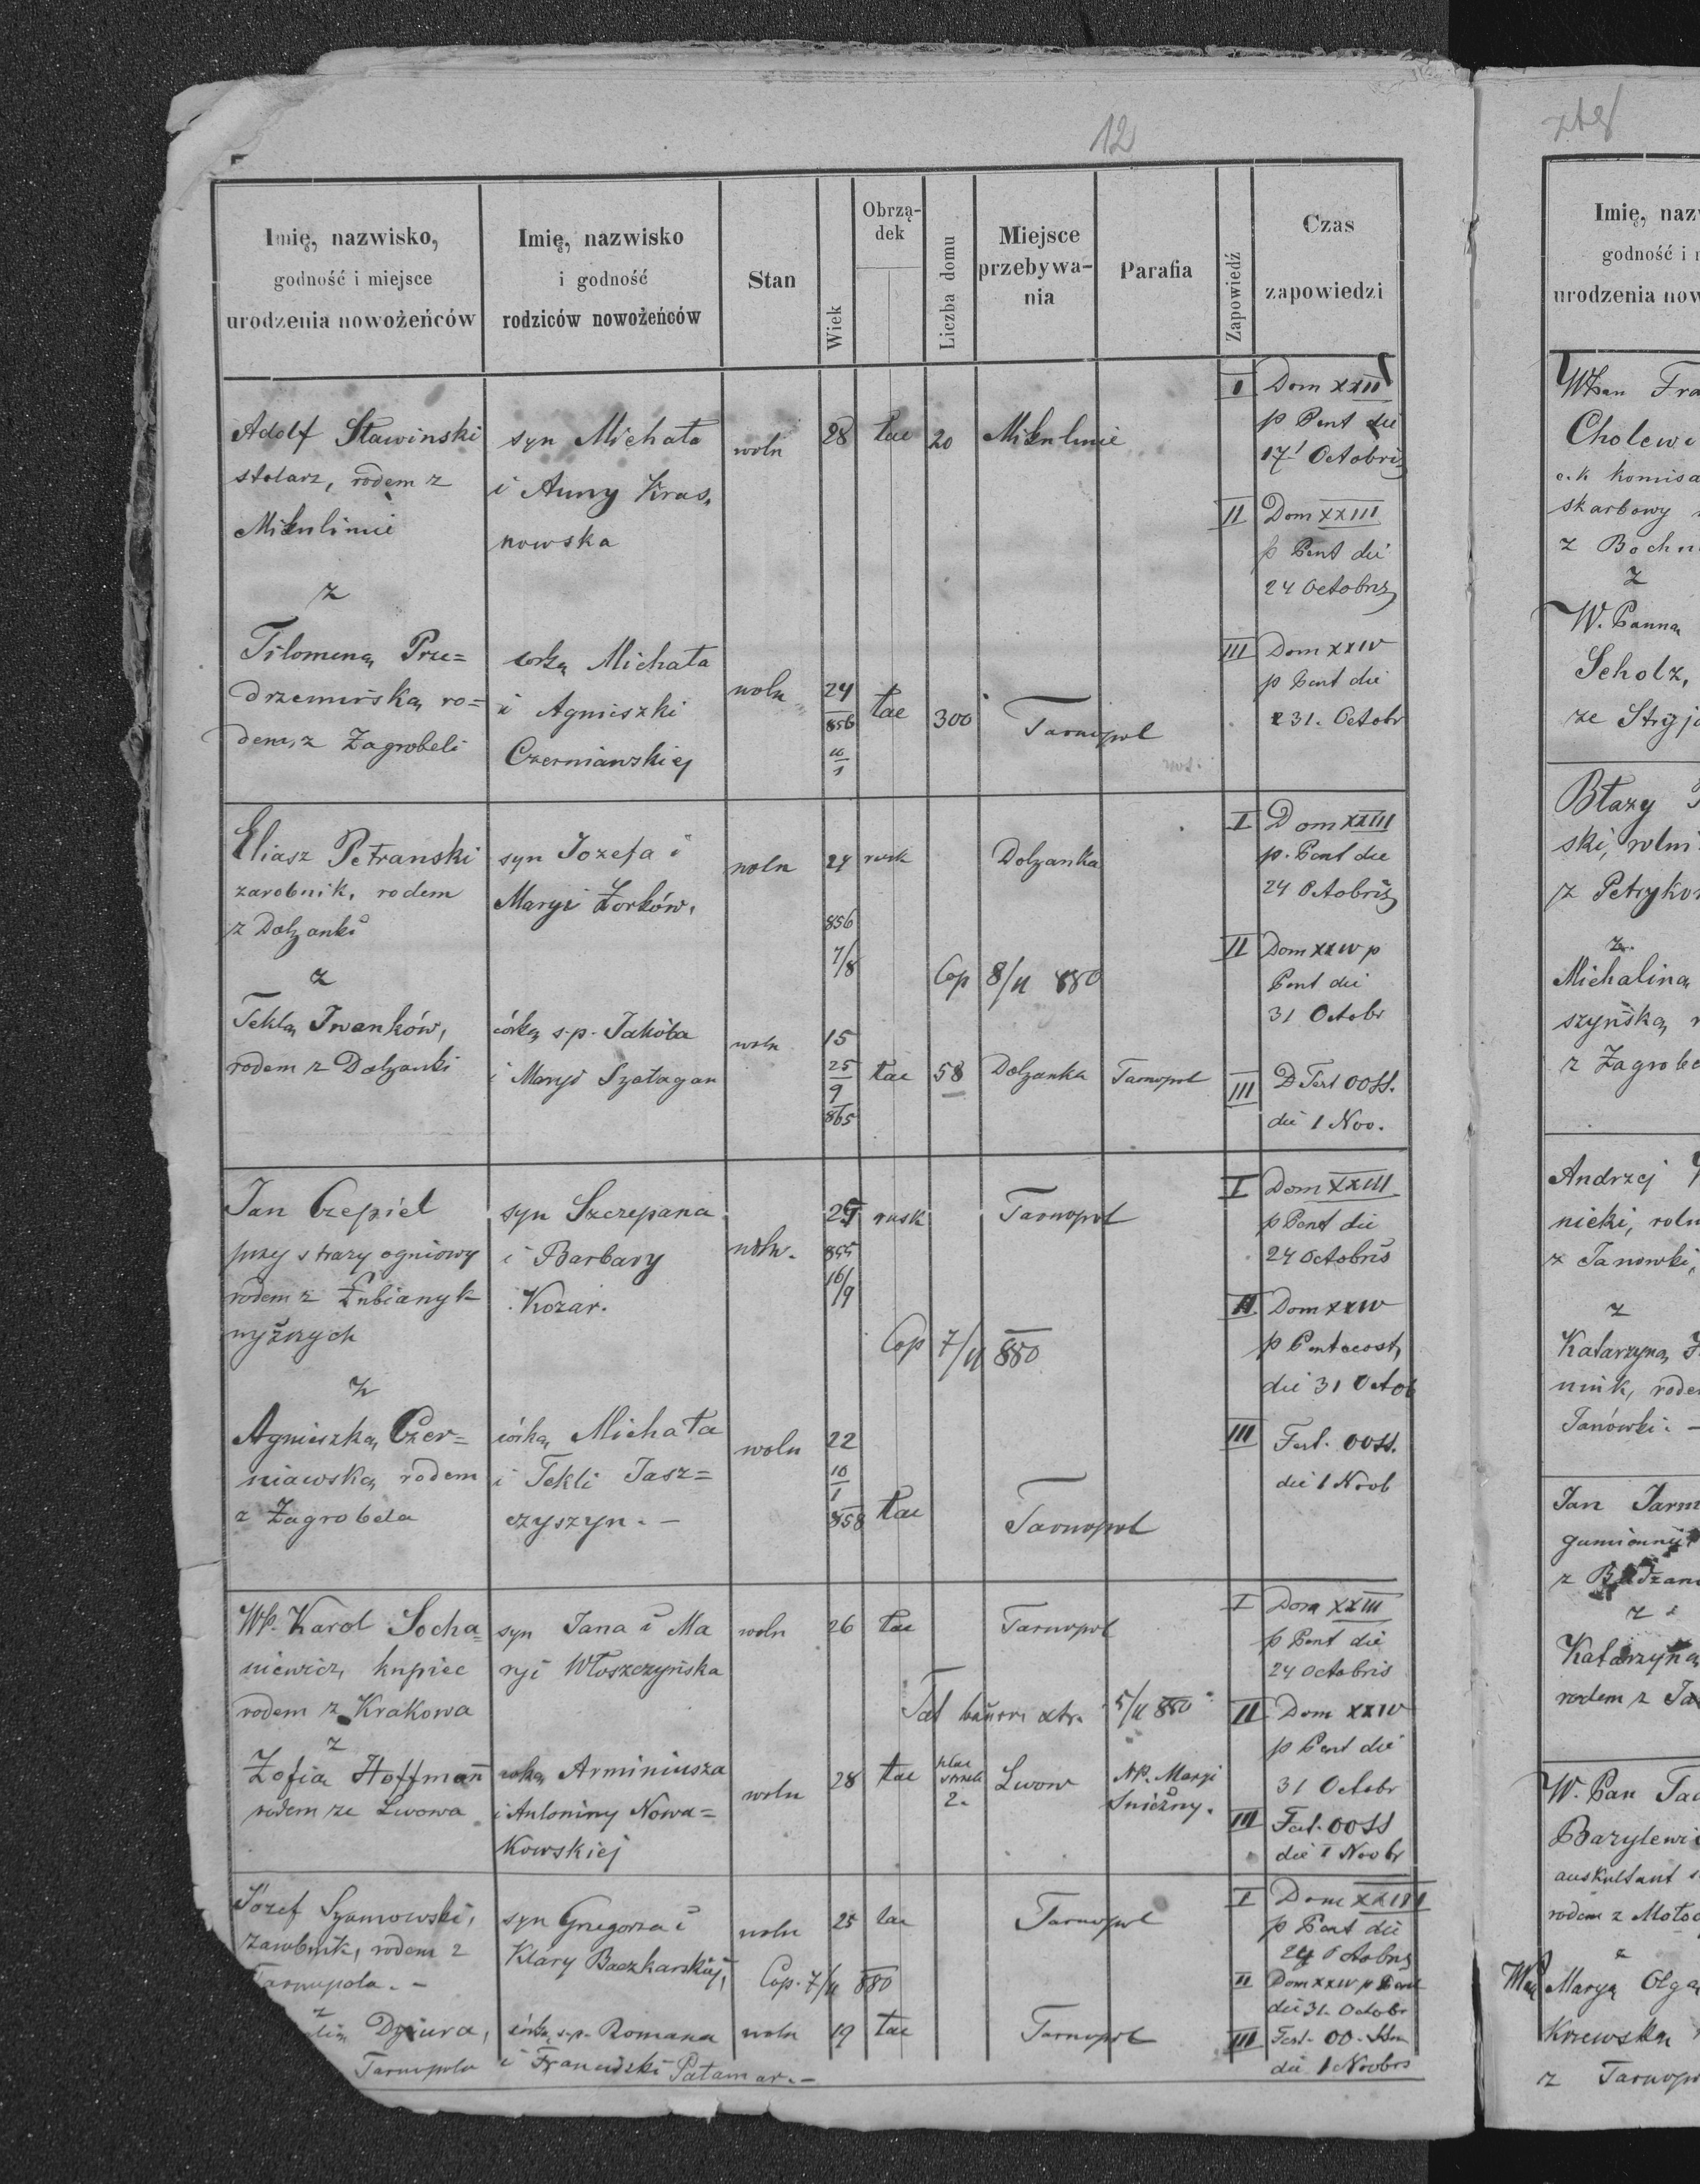 12
Imię, nazwisko,
godność i miejsce
urodzenia nowożeńców
Imię, nazwisko
i godność
rodziców nowożeńców
Stan
Wiek
Obrzą-
dek
Liczba domu
Miejsce
przebywa-
nia
Parafia
Zapowiedź
Czas
zapowiedzi
Adolf Sławinski
stolarz, rodem z
Mikulinie
z
Filomeną Prze=
drzemirską ro=
dem z Zagrobeli
syn Michała
i Anny Kras,
nowska
córką Michała
i Agnieszki
Czerniawskiej
woln 28 łac 20 Mikulinie
woln 24 łac 300 Tarnopol
856
I Dom XXII
p Pent die
17 Octobris
II Dom XXIII
p Pent die
24 Octobris
III Dom XXIV
p Pent die
31. Octobr
Eliasz Petranski
zarobnik, rodem
z Dolzanki
z
Teklą Iwanków,
rodem z Dolzanki
syn Jozefa i
Maryi Żorków,
córką s.p. Jakóba
i Maryi Szałagan
woln 24 rusk Dolzanka
856
7/8
Cop 8/11 880
woln 15
25
9
865
łac 58 Dolzanka Tarnopol
I Dom XXIII
p. Pent die
24 Octobris
II Dom XXIV p
Pent die
31 Octobr
III D Fest OOSS.
die 1 Nov.
Jan Czepiel
przy straży ogniowy
rodem z Łubianyk
wyżnych
z
Agnieszką Czer=
niawską rodem
z Zagrobela
syn Szczepana
i Barbary
Kozar.
córką Michała
i Tekli Jasz=
czyszyn. -
woln. 25 rusk Tarnopol
855
16/9
Cop 7/11 880
woln 22
10
1
858
łac Tarnopol
I Dom XXIII
p Pent die
24 Octobris
II Dom XXIV
p Pentecost,
die 31 Octob
III Fest. OOSS.
die 1 Novb
Wp. Karol Socha=
niewicz, kupiec
rodem z Krakowa
z
Zofia Hoffman
rodem ze Lwowa
syn Jana i Ma
ryi Włoszczyńska
córką Arminiusza
i Antoniny Nowa=
kowskiej
woln 26 łac Tarnopol
5/11 880
woln 28 łac 2. Lwow NP. Maryi
Snieżny.
I Dom XXIII
p Pent die
24 Octobris
II Dom XXIV
p Pent die
31 Octobr
III Fest. OOSS
die 1 Novbr
Józef Szamowski,
zarobnik, rodem z
Tarnopola. -
z
Dziura,
Tarnopola
syn Grzegorza i
Klary Baczkarskiej,
córką s.p. Romana
i Franciszki Patamar. -
woln 25 łac Tarnopol
Cop. 7/11 880
woln 19 łac Tarnopol
I Dom XXIII
p Pent die
24 Octobris
II Dom XXIV p Pent
die 31. Octobr
III Fest. OO. SSm
die 1 Novbris
Imię, naz
godność i
urodzenia now
WPan Fra
Cholewi
c.k komisa
skarbowy
z Bochn
z
W. Panna
Scholz,
ze Stryj
Błazy
ski, rolni
z Petryko
z
Michaliną
szyńską
z Zagrobe
Andrzej
nicki, roln
z Janowki,
z
Katarzyną
nik, rode
Janówki. -
Jan Jarm
gumienny
z Budzan
z
Katarzyną
rodem z Ja
W. Pan Tad
Barylewi
auskultant
rodem z Moło
z
Maryą Olgą
Krzewską
z Tarnopo